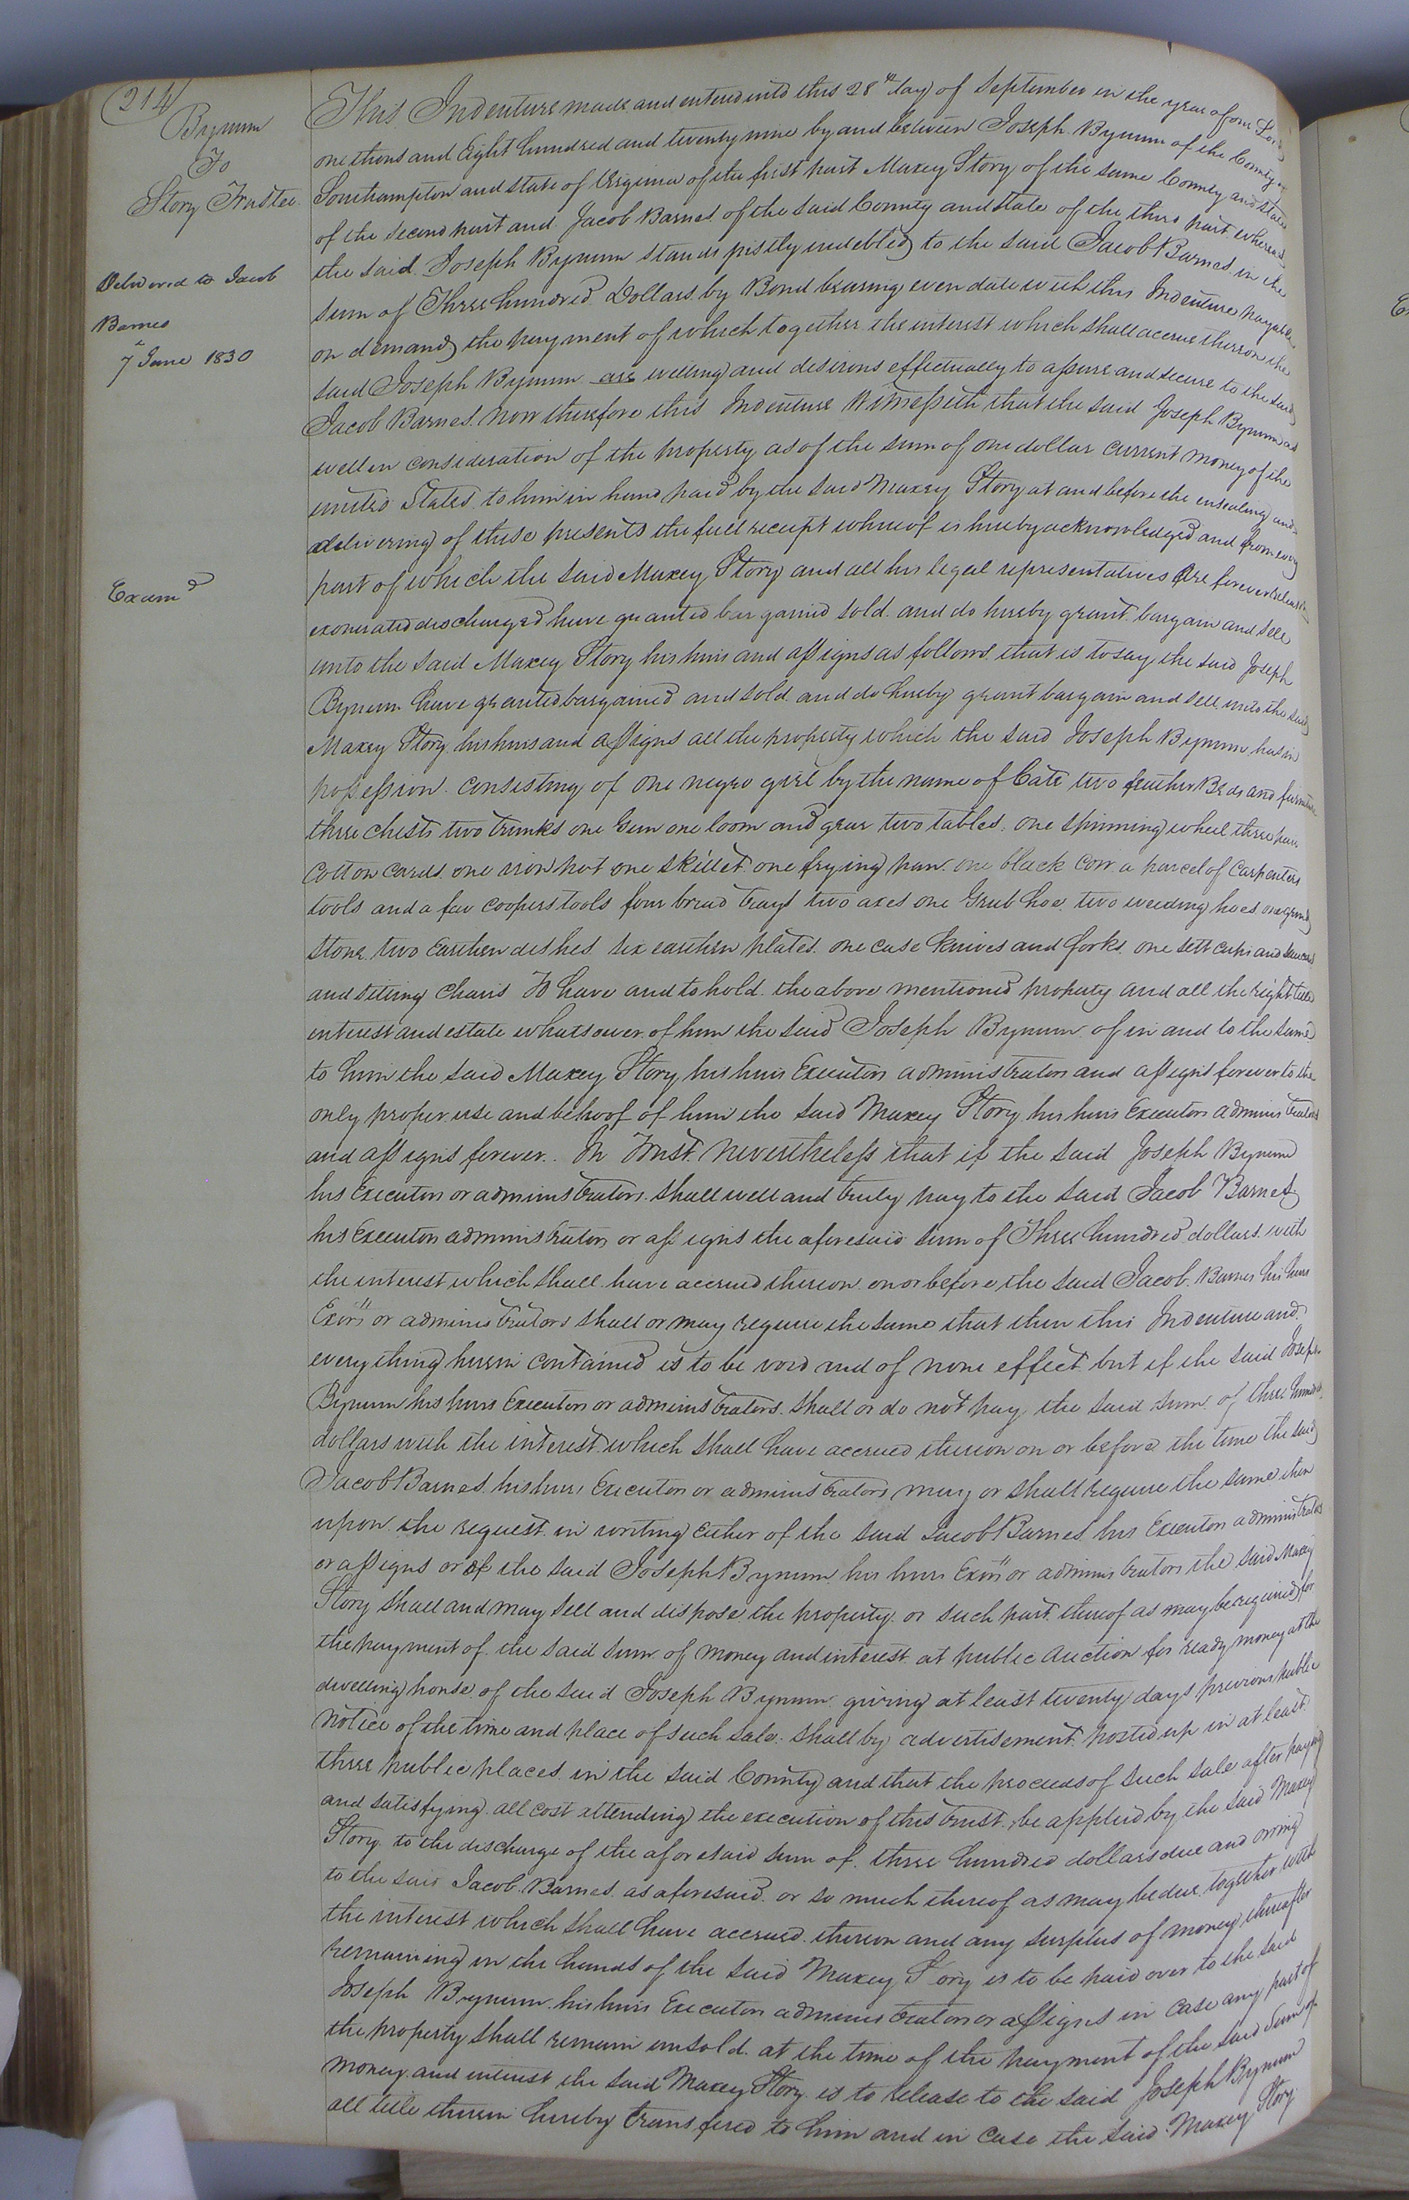 214
Bynum
To
Story Trustee
Delivered to Jacob
Barnes
7th June 1830
Examd
This Indenture made and entered into this 28th day of September in the year of our Lord
one thous and Eight hundred and twenty nine by and between Joseph Bynum of the County of
Southampton and state of Virginia of the first part Maxey Story of the same County and State
of the second part and Jacob Barnes of the said County and state of the third part whereas
the said Joseph Bynum stands justly indebted to the said Jacob Barnes in the
sum of Three hundred Dollars by Bond bearing even date with this Indenture payable
on demand the payment of which together the interest which shall accrue thereon the
said Joseph Bynum are willing and desirous effectually to assure and secure to the said
Jacob Barnes. Now therefore this Indenture Witnesseth that the said Joseph Bynum as
well in consideration of the property as of the sum of one dollar current money of the
united States to him in hand paid by the said Maxey Story at and before the ensealing and
delivering of these presents the full receipt whereof is hereby acknowledged and from every
part of which the said Maxey Story and all his legal representatives are forever
exonerated discharged have granted bargained sold and do hereby grant bargain and sell
unto the said Maxey Story his heirs and assigns as follows that is to say the said Joseph
Bynum have granted bargained and sold and do hereby grant bargain and sell unto the said
Maxey Story his heirs and assigns all the property which the said Joseph Bynum has in
possession consisting of one negro girl by the name of Cate two feather Beds and furniture
three chests two trunks one Gun one loom and gear two tables one spinning wheel three pair
Cotton cards one iron pot one skillet one frying pan one black cow a parcel of carpenters
tools and a few coopers tools four bread trays two axes one Grub hoe two weeding hoes one grind
stone two Earthen dishes six earthen plates one case knives and forks one sett cups and saucers
and setting Chairs To have and to hold the above mentioned property and all the right title
interest and estate whatsoever of him the said Joseph Bynum of in and to the same
to him the said Maxey Story his heirs Executors administrators and assigns forever to the
only proper use and behoof of him the said Maxey Story his heirs Executors administrators
and assigns forever. In Trust nevertheless that if the said Joseph Bynum
his Executors or administrators shall well and truly pay to the said Jacob Barnes
his Executors administrators or assigns the aforesaid sum of Three hundred dollars with
the interest which shall have accrued thereon on or before the said Jacob Barnes his heirs
Exors or administrators shall or may require the same that then this Indenture and
every thing herein contained is to be void and of none effect but if the said Joseph
Bynum his heirs Executors or administrators shall or do not pay the said sum of three hundred
dollars with the interest which shall have accrued thereon on or before the time the said
Jacob Barnes his heirs Executors or administrators may or shall require the same then
upon the request in writing Either of the said Jacob Barnes his Executors administrators
or assigns or of the said Joseph Bynum his heirs Exors or administrators the said Maxey
Story shall and may sell and dispose the property or such part thereof as may be required for
the payment of the said sum of money and interest at public auction for ready money at the
dwelling house of the said Joseph Bynum giving at least twenty days previous public
notice of the time and place of such sale shall by advertisement posted up in at least
three public places in the said County and that the proceeds of such sale after paying
and satisfying all cost attending the execution of this trust be applied by the said Maxey
Story to the discharge of the aforesaid sum of three hundred dollars due and owing
to the said Jacob Barnes as aforesaid or so much thereof as may be due together with
the interest which shall have accrued thereon and any surplus of money thereafter
remaining in the hands of the said Maxey Story is to be paid over to the said
Joseph Bynum his heirs Executors administrators or assigns in case any part of
the property shall remain unsold at the time of the payment of the said sum of
money and interest the said Maxey Story is to release to the said Joseph Bynum
all title therein hereby transfered to him and in case the said Maxey Story